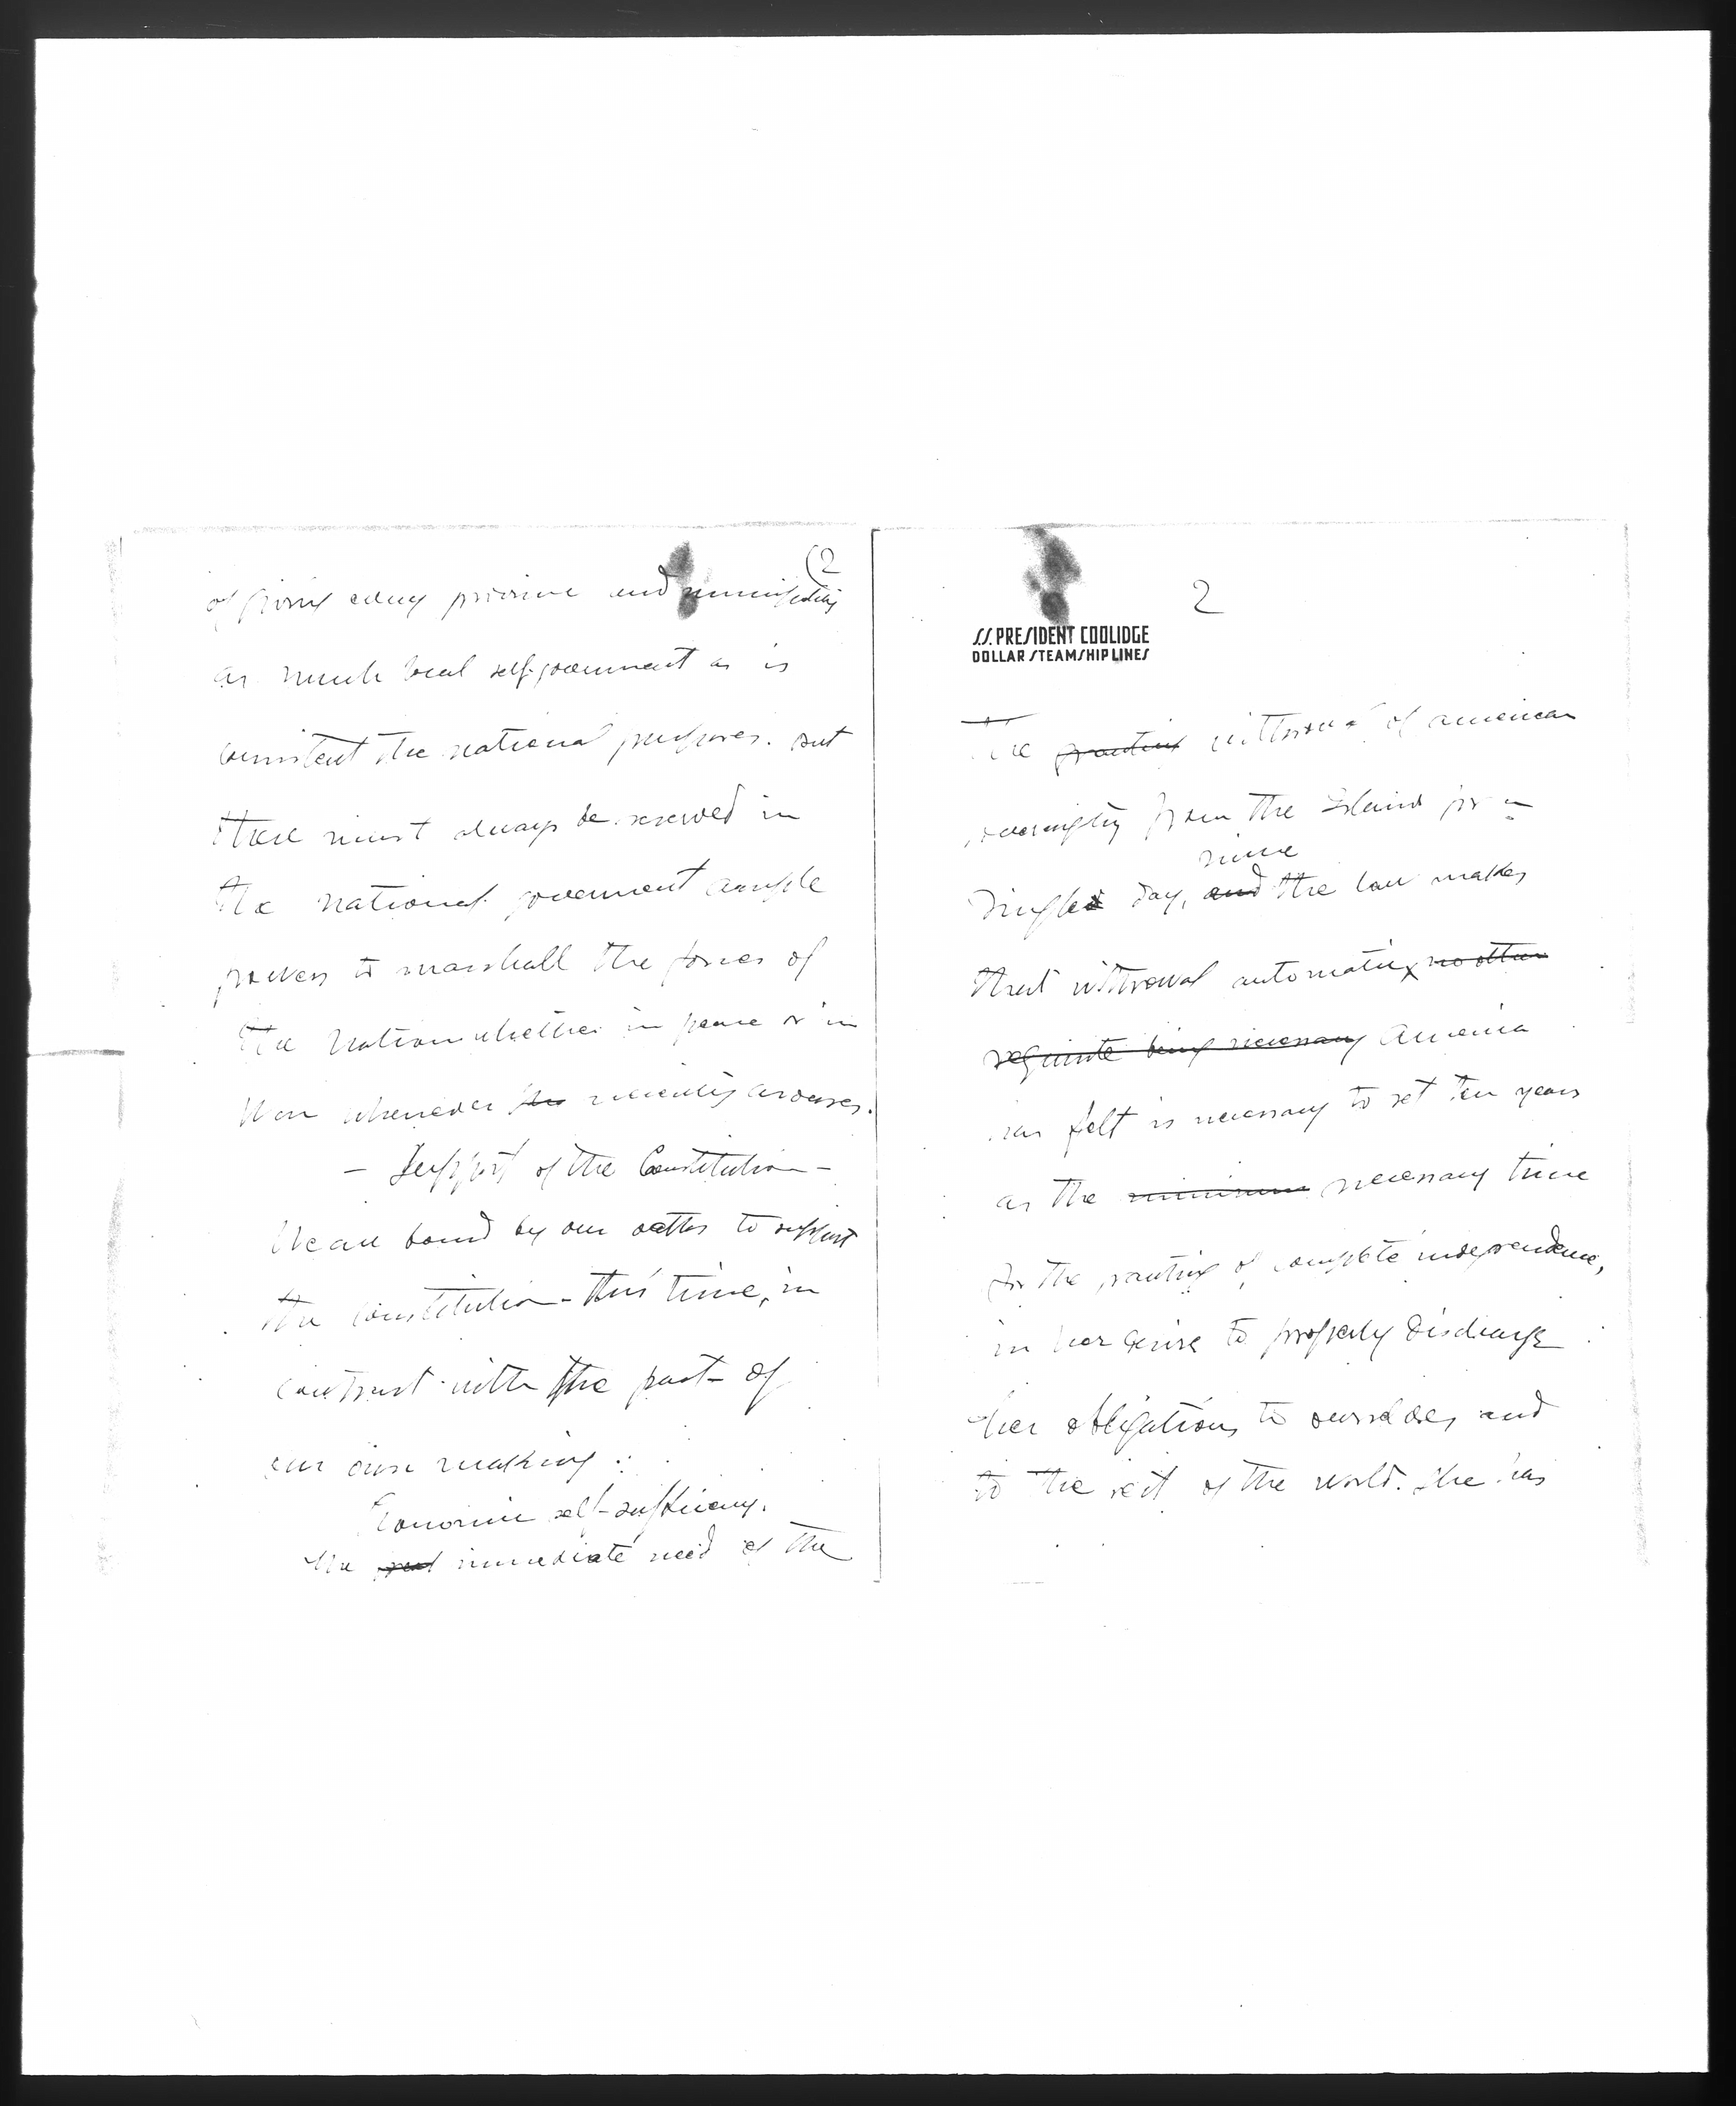 (2
of giving every province and municipality
as much local self-government as is
consistent the national purposes. But
there must always be reserved in
the national government ample
powers to marshall the forces of
the Nation whether in peace or in
War whenever the necessity arouses.
- Support of the Constitution -
We are bound by our oaths to support
the constitution - this time, in
contrast with the past - of
our own making :
Economic self-sufficiency.
The immediate need of the
2
S.S. PRESIDENT COOLIDGE
DOLLAR STEAMSHIP LINES
The granting withrawal of american
sovereignty from the Island for a
since
single day, and the law makes
that withrawal automatic, no other
requisite being necessary America
has felt is necessary to set ten years
as the minimum necessary time
for the granting of complete independence,
in her desire to properly discharge
her obligations to ourselves and
to the rest of the world. She has